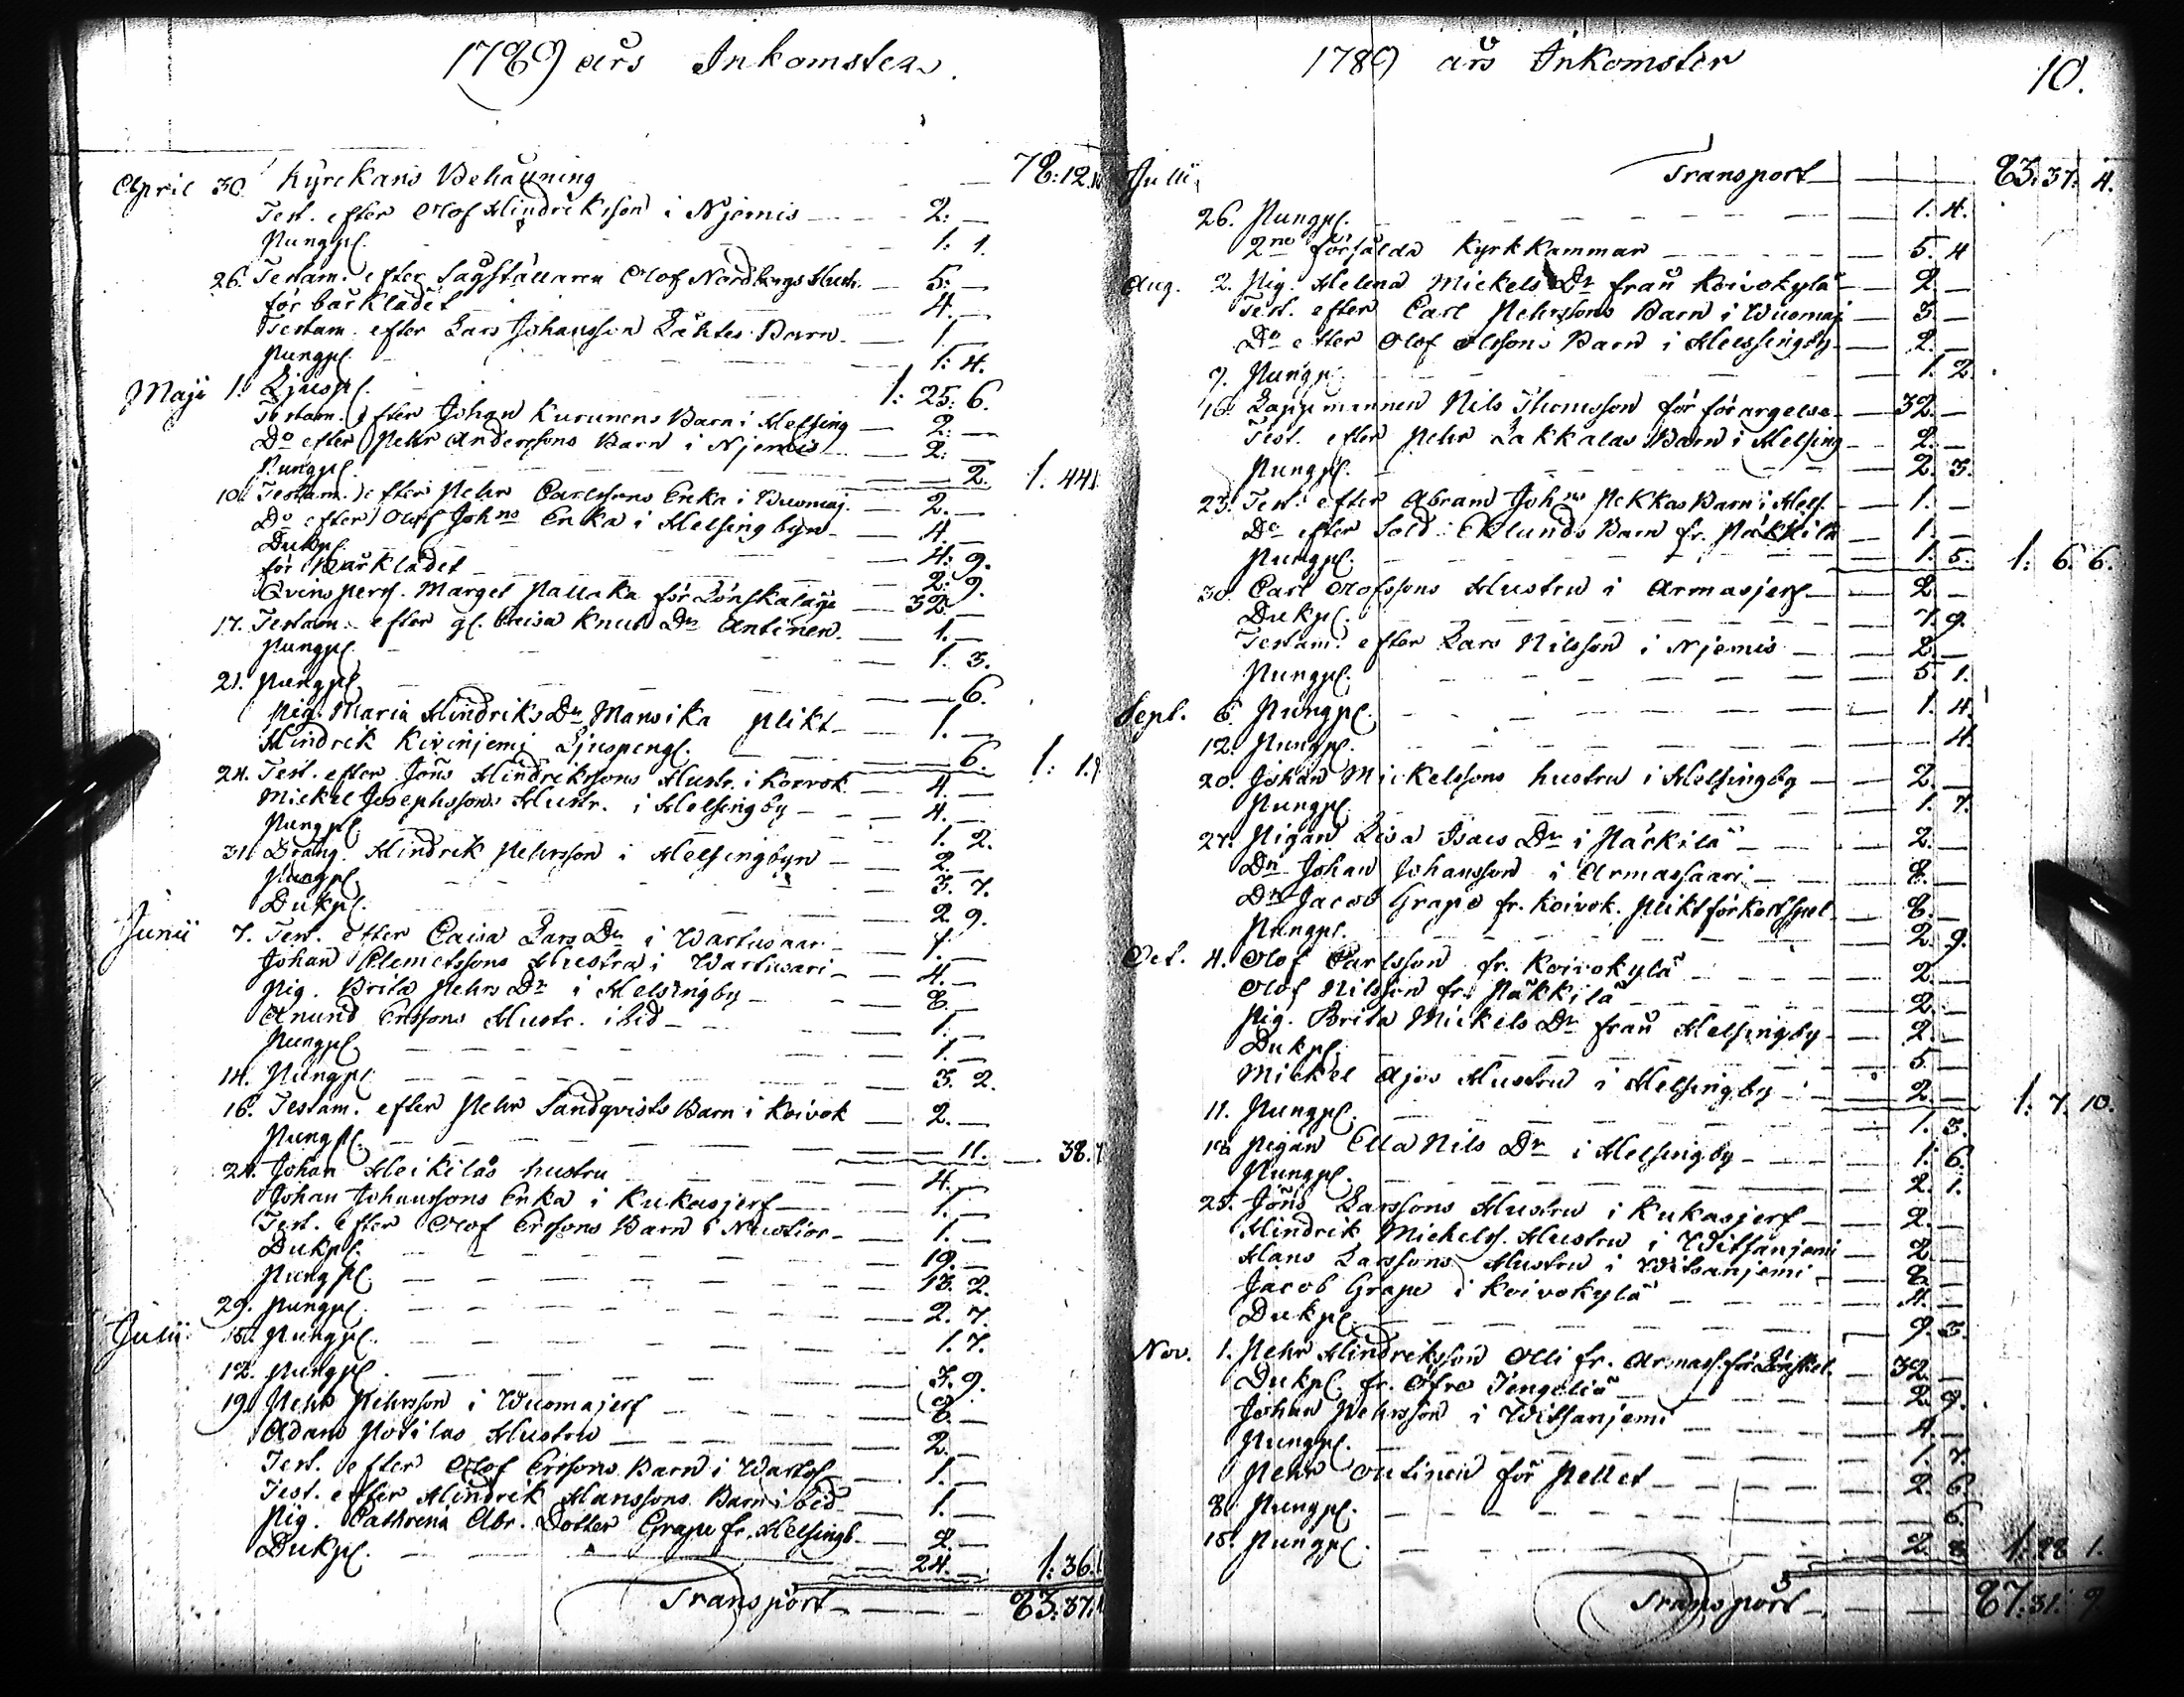 1789 års Inkomster.
Kyrkans Behållning — 78:12.10
April 30. Test. efter Olof Hindriksson i Njemis — 2. —
Pungp. — 1. 1.
26. Testam. efter Sågställaren Olof Nordbergs Hustr. — 5. —
för bårklädet — 4. —
Testam. efter Lars Johansson Lähtes Barn — 1. —
Pungp. — 1: 4.
Maji 1. Ljusp. — 1: 25. 6.
Testam. efter Johan Kurunens Barn i Helsing — 2. —
Do efter Pehr Anderssons Barn i Njemis — 2. —
Pungp. — 2. 1. 44
10. Testam. efter Pehr Carlssons Enka i Wuomaj. — 2. —
Do efter Olof Johns Enka i Helsingbyn — 4. —
Dukp. — 4. 9.
för Bårklädet — 2. 9.
Qvinspers. Marget Pallaka för Lönskaläge — 32. —
17. Testam. efter gl. Caisa Knuts Dr Antinen — 1. —
Pungp. — 1. 3.
21. Pungp. — 6.
Pig. Maria Hindriks Dr Mansika plikt — 1. —
Hindrik Kivinjemi Ljuspeng. — 6. 1: 1.
24. Test. efter Jöns Hindrikssons Hustr. i Koivok. — 4. —
Mickel Josephssons Hustr. i Helsingby — 4. —
Pungp. — 1. 2.
31. Dräng. Hindrik Pehrsson i Helsingbyn — 2. —
Pungp. — 3. 7.
Dukp. — 2 9.
Junii 7. Test. efter Caisa Lars Dr i Wartusaari — 1. —
Johan Clemetssons Hustru i Wartusari — 4. —
Pig. Brita Pehrs Dr i Helsingby — 8. —
Anund Erssons Hustr. ibid — 1. —
Pungp. — 1. —
14. Pungp. — 3. 2.
16. Testam. efter Pehr Sandqvists Barn i Koivok — 2. —
Pungp. — 11. — 38.
24. Johan Heikilas hustru — 4. —
Johan Johanssons Enka i Kukasjerf — 1. —
Test. efter Olof Ersons Barn i Nustior — 1. —
Dukp. — 19. —
Pungp. — 13. 2.
29. Pungp. — 2. 7.
Julii Pungp. — 1. 7.
12. Pungp. — 3. 9.
19. Pehr Pehrsson i Wuomajerf — 8. —
Adam Potilas Hustru — 2. —
Test. efter Olof Ersons Barn i Wartus — 1. —
Test. efter Hindrik Hanssons Barn ibid — 1. —
Pig. Cathrina Abr. Dotter Grape fr. Helsingb. — 2. —
Dukp. — 24. — 1:36.
Transport — 83:37.
1789 års Inkomster 10.
Transport — 83. 37. 4.
Julii 26. Pungp. — 1. 4.
2ne försålda Kyrkkammar — 5. 4
Aug. 2. Pig. Helena Mickels Dr från Koivokylä — 2 —
Test. efter Carl Pehrssons Barn i Wuomaj — 3. —
Do efter Olof Olssons Barn i Helssingby — 2. —
9. Pungp. — 1. 2.
16. Lappmannen Nils Thomsson för förargelse — 32. —
Test. efter Pehr Lakkalas Barn i Helsing — 2. —
Pungp. — 2. 3.
23. Test. efter Abram Johns Pekkas Barn i Hels. — 1. —
Do efter Sold. Eklunds Barn fr. Päkkilä — 1. —
Pungp. — 1. 5. 1: 6. 6.
30. Carl Olofssons Hustru i Armasjerf — 2 —
Dukp. — 7. 9.
Testam. efter Lars Nilsson i Njemis — 2. —
Pungp. — 5. 1.
Sept. 6. Pungp. — 1. 4.
12. Pungp. — 4.
20. Johan Mickelssons hustru i Helsingby — 2. —
Pungp. — 1. 7.
27. Pigan Lisa Isacs Dr i Päckilä — 2. —
Dn Johan Johansson i Armassaari — 8. —
Dn Jacob Grape fr. Koivok. plikt för Kortspel — 8. —
Pungp. — 2. 9.
Oct. 4. Olof Carlsson fr. Koivokylä — 2. —
Olof Nilsson fr. Päkkilä — 2. —
Pig. Brita Mickels Dr från Helsingby — 2. —
Dukp. — 5. —
Mickel Ajos Hustru i Helsingby — 2. — 1. 7. 10.
11. Pungp. — 1. 3.
18. Pigan Ella Nils Dr i Helsingby — 1. 6.
Pungp. — 2. 1.
25. Jöns Larssons Hustru i Kukasjerf — 2. —
Hindrik Michels. Hustru i Witsanjemi — 2. —
Hans Larssons Hustru i Witsanjemi — 8. —
Jacob Grape i Koivokylä — 4. —
Dukp. — 9. 3.
Nov. 1. Pehr Hindriksson Olli fr. Armass. för Lönskal. — 32. —
Dukp. fr. öfre Tengeliä — 2. 9.
Johan Pehrsson i Witsanjemi — 4. —
Pungp. — 1. 7.
Pehr Outinen för Pellet — 2. 6.
8. Pungp. — 6.
15. Pungp. — 2. 8. 1:28 1.
Transport — 87:31. 9